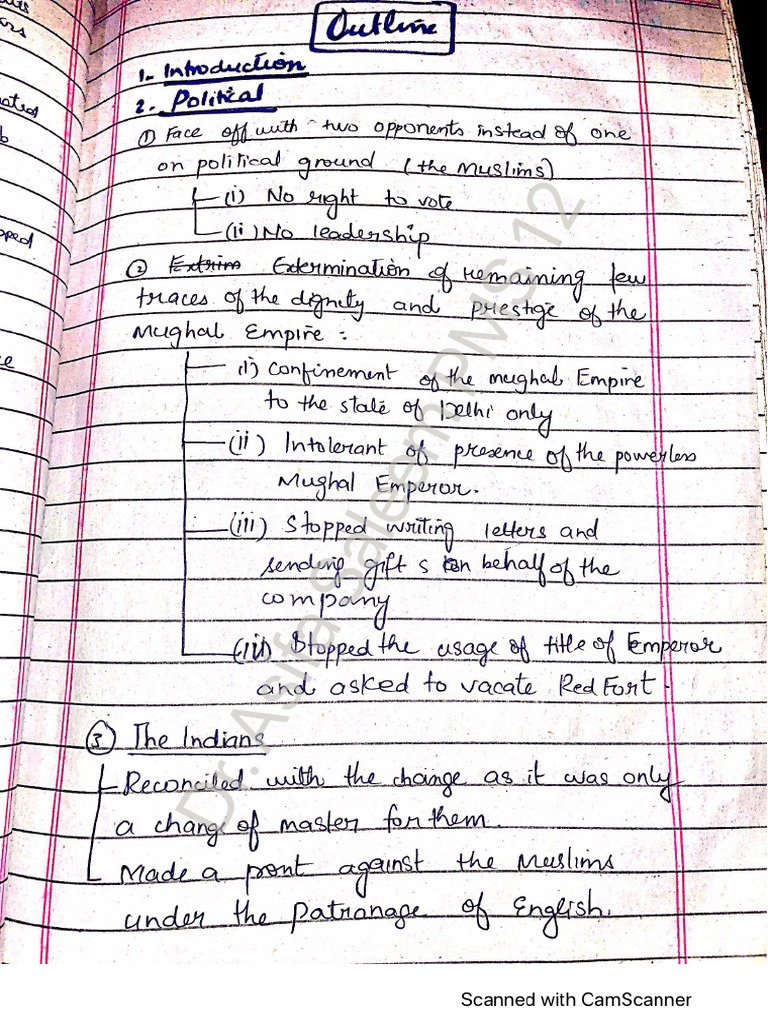 Outline
1- Introduction
2. Political
① Face off with two opponents instead of one
on political ground (the Muslims)
(i) No right to vote
(ii) No leadership
② Extrim Extermination of remaining few
traces of the dignity and prestige of the
Mughal Empire :
(i) Confinement of the mughal Empire
to the state of Delhi only
(ii) Intolerant of presence of the powerless
Mughal Emperor.
(iii) Stopped writing letters and
sending gift s on behalf of the
company
(iii) Stopped the usage of title of Emperor
and asked to vacate Red Fort.
③ The Indians
Reconciled with the change as it was only
a change of master for them.
Made a pront against the Muslims
under the Patranage of English.
Dr. Asifa Saleem PMS 12
Scanned with CamScanner